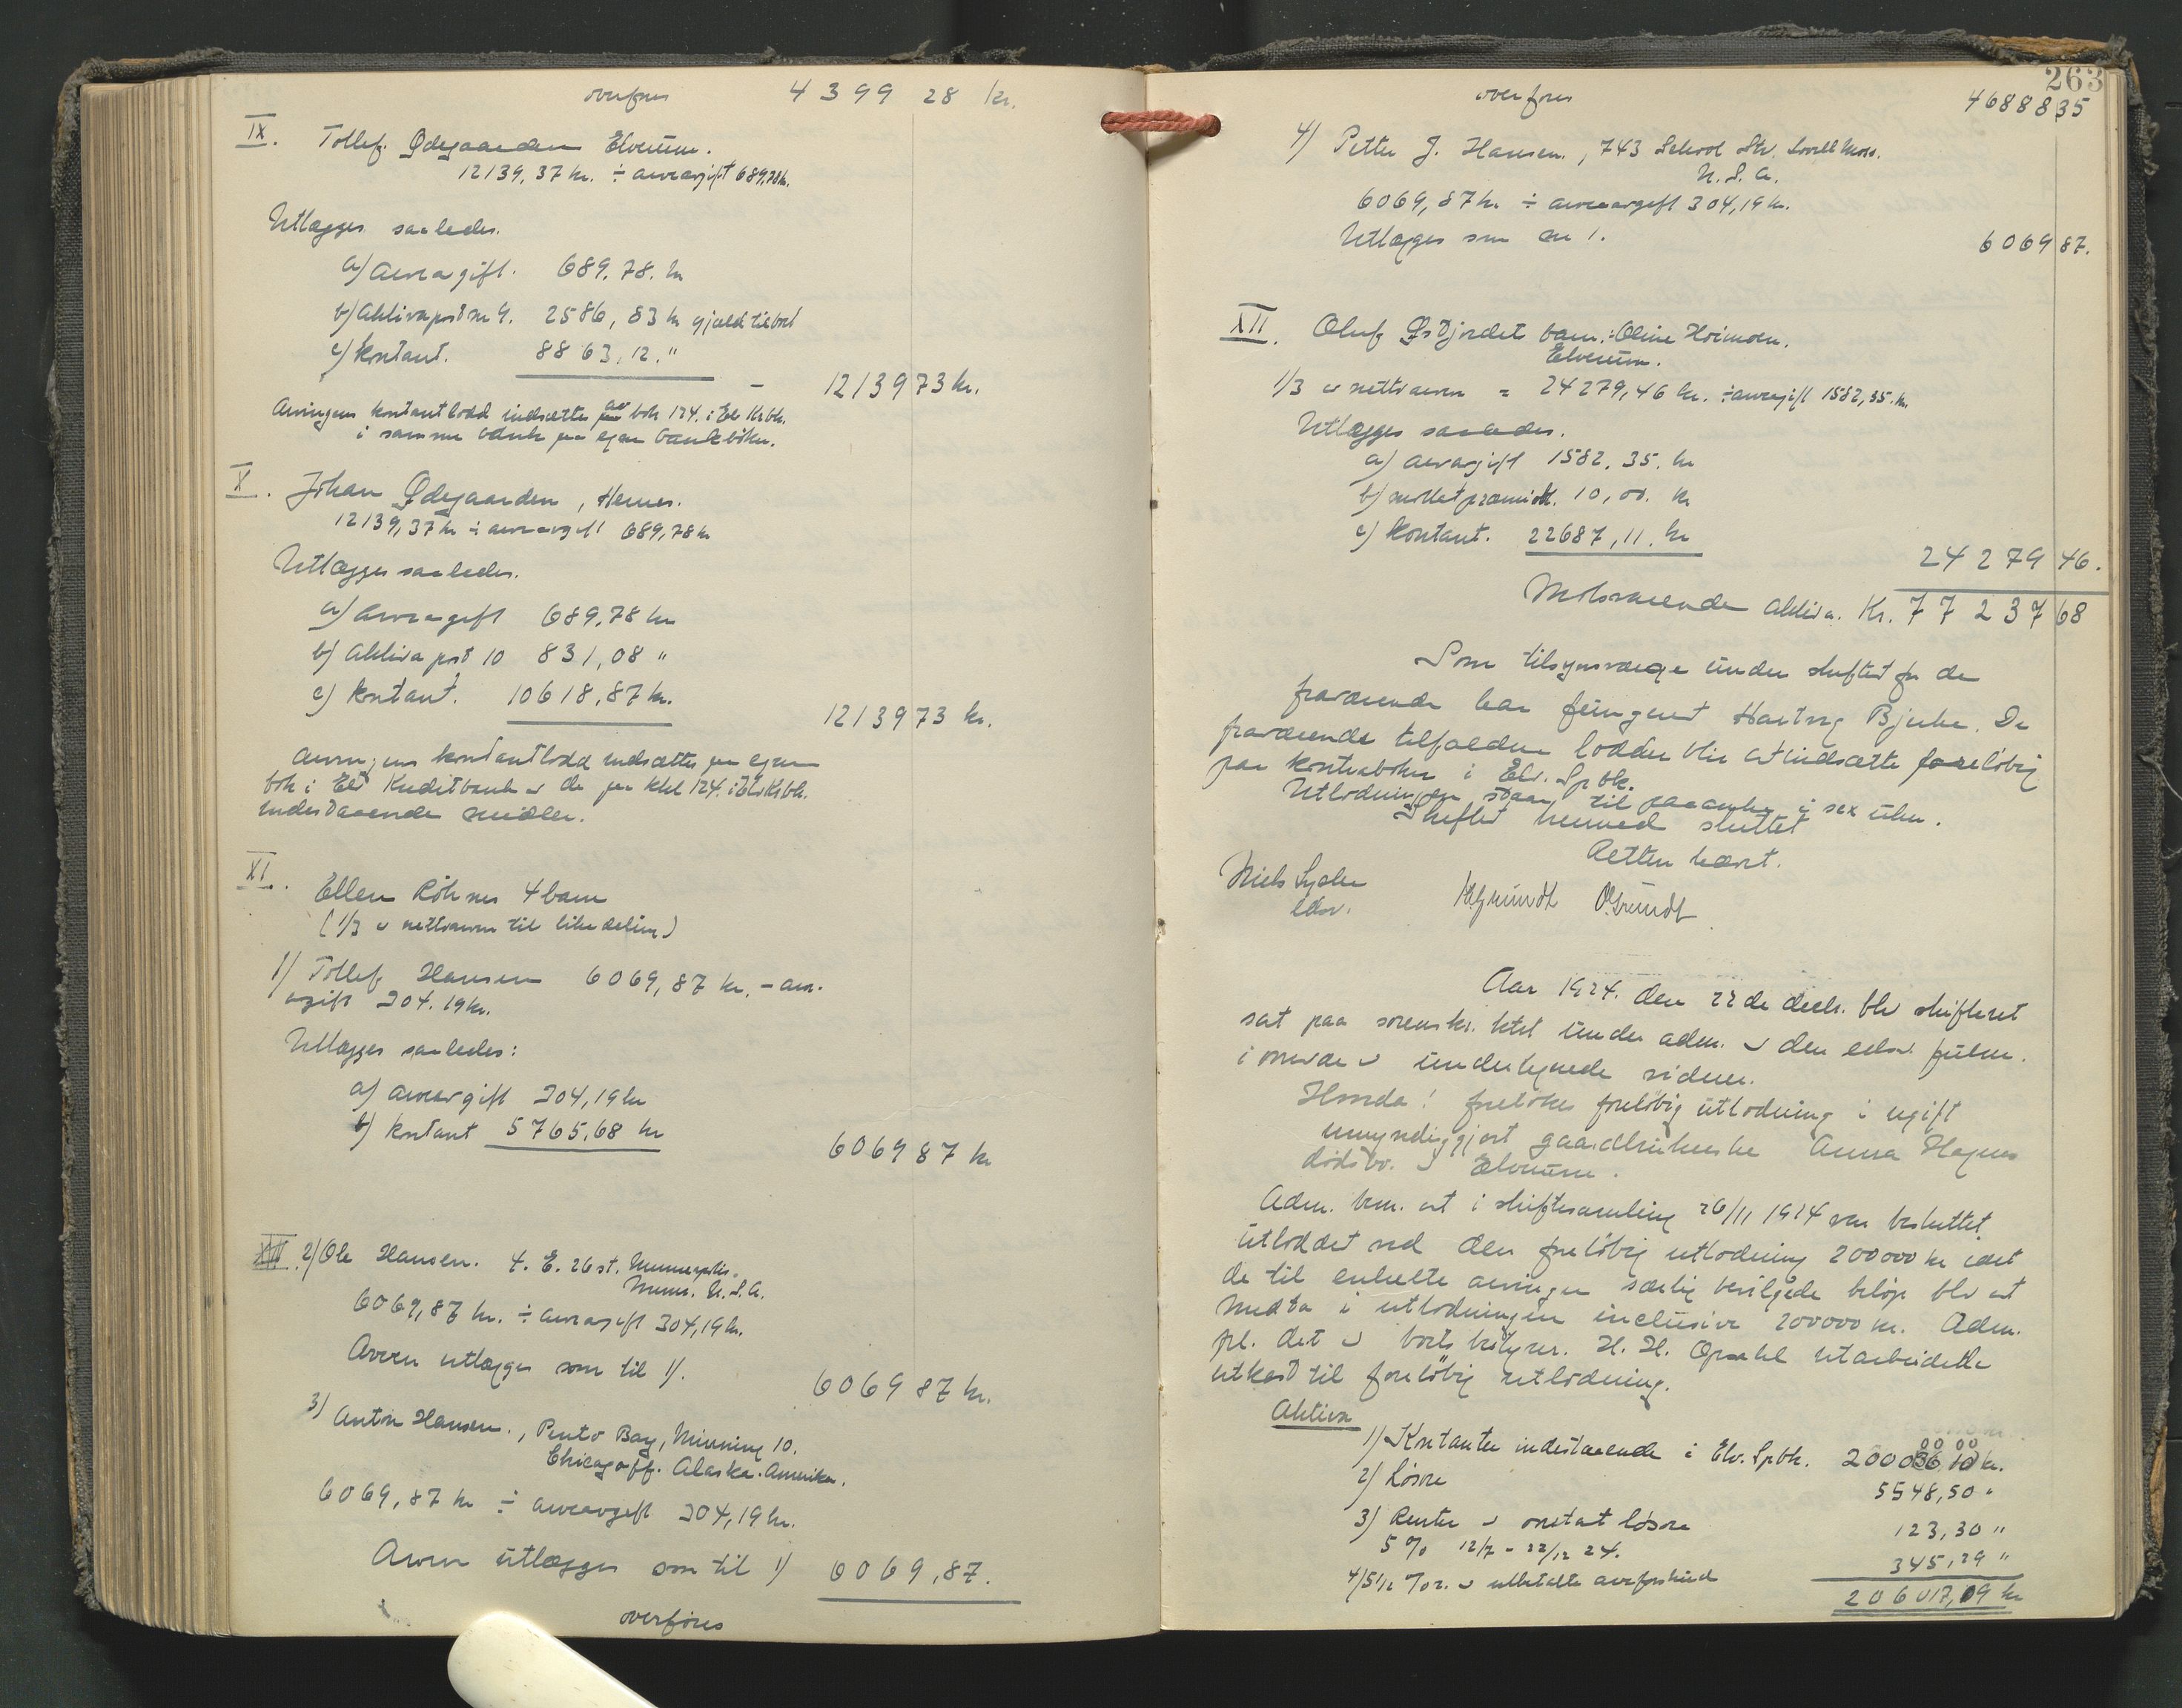 overføres 4399 28 kr.
IX. Tollef Ødegaarden Elverum.
12139,37 kr. ÷ arveavgift 689,78 kr.
Utlægges saaledes.
a) arveavgift. 689.78. kr
b) Aktivapost nr 9. 2586,83 kr gjæld til boet
c) kontant. 8863,12. "
- 1213973 kr.
Arvingens kontantlodd indsættes av bok 124. i Elv Krbk.
i samme bank paa egen bankbøker.
X. Johan Ødegaarden, Hernes.
12139,37 kr ÷ arveavgift 689,78 kr
Utlægges saaledes.
a) Arveavgift 689,78 kr
b) Aktiva post 10 831,08 "
c) kontant. 10618,87 kr.
1213973 kr.
Arvingens kontantlodd indsættes paa egen
bok i Elv Kreditbank av de paa 124. i Elv Krbk.
indestaaende midler.
XI. Ellen Röhnes 4 barn
(1/3 av nettoarven til like deling)
1) Tollef Hansen 6069,87 kr. - arve-
avgift 304.19 kr.
Utlægges saaledes:
a) arveavgift 304,19 kr
b) kontant 5765,68 kr
606987 kr
XII. 2) Ole Hansen. 4. E. 26 st. Minneapolis.
Minn. U.S.A.
6069,87 kr. ÷ arveavgift 304,19 kr.
Arven utlægges som til 1).
606987 kr.
3) Anton Hansen., Pinto Bay, Minning 10.
Chicagoff. Alaska. Amerika.
6069,87 kr ÷ arveavgift 304,19 kr.
Arven utlægges som til 1) 6069,87.
overføres
263
overføres 4688835
4) Petter J. Hansen., 743 School Str. Lowell Mass.
U.S.A.
6069,87 kr ÷ arveavgift 304,19 kr.
Utlægges som nr 1.
606987.
XII. Oluf Østjordets barn: Oline Hoimoen.
Elverum.
1/3 av nettoarven = 24279,46 kr. ÷ arveavgift 1582,35 kr.
Utlægges saaledes.
a) arveavgift 1582.35. kr
b) 10,00. kr
c) kontant. 22687,11. kr
24279 46.
Motsvarende aktiva. Kr. 77237 68
Som tilsynsværge under skiftet for de
fraværende har fungeret Hartvig Bjerke. De
fraværende tilfaldne lodder blir at indsætte foreløbig
paa kontrabøker i Elv. Spbk.
Utlodningen staar til paaanke i sex uker.
Skiftet hermed sluttet
Retten hævt.
Niels Lycke
edsv. HGrundt OGrundt
Aar 1924. den 22de decbr. blev skifteret
sat paa sorenskr. ktet under adm. av den edsv. fuldm.
i nærvær av undertegnede vidner.
Hvorda! foretokes foreløbig utlodning i ugift
umyndiggjort gaardbrukerske Anna Hagens
dødsbo. av Elverum.
Adm. bem. at i skiftesamling 26/11 1924 var besluttet
utloddet ved den foreløbig utlodning 200000 kr idet
de til enkelte arvinger særlig bevilgede beløp blev at
medta i utlodningen inclusive 200000 kr. Adm.
frl. det av bobestyrer. H. H. Opsahl utarbeidede
utkast til foreløbig utlodning.
Aktiva
1) Kontanter indestaaende i Elv. Spbk. 200000,00 kr.
2) Løsøre 5548,50 "
3) Renter av ansat løsøre 123,30 "
5 % 12/7 - 22/12 24.
4) 5 1/2 % r. av utbetalte arveforskud 345,29 "
206017,09 kr